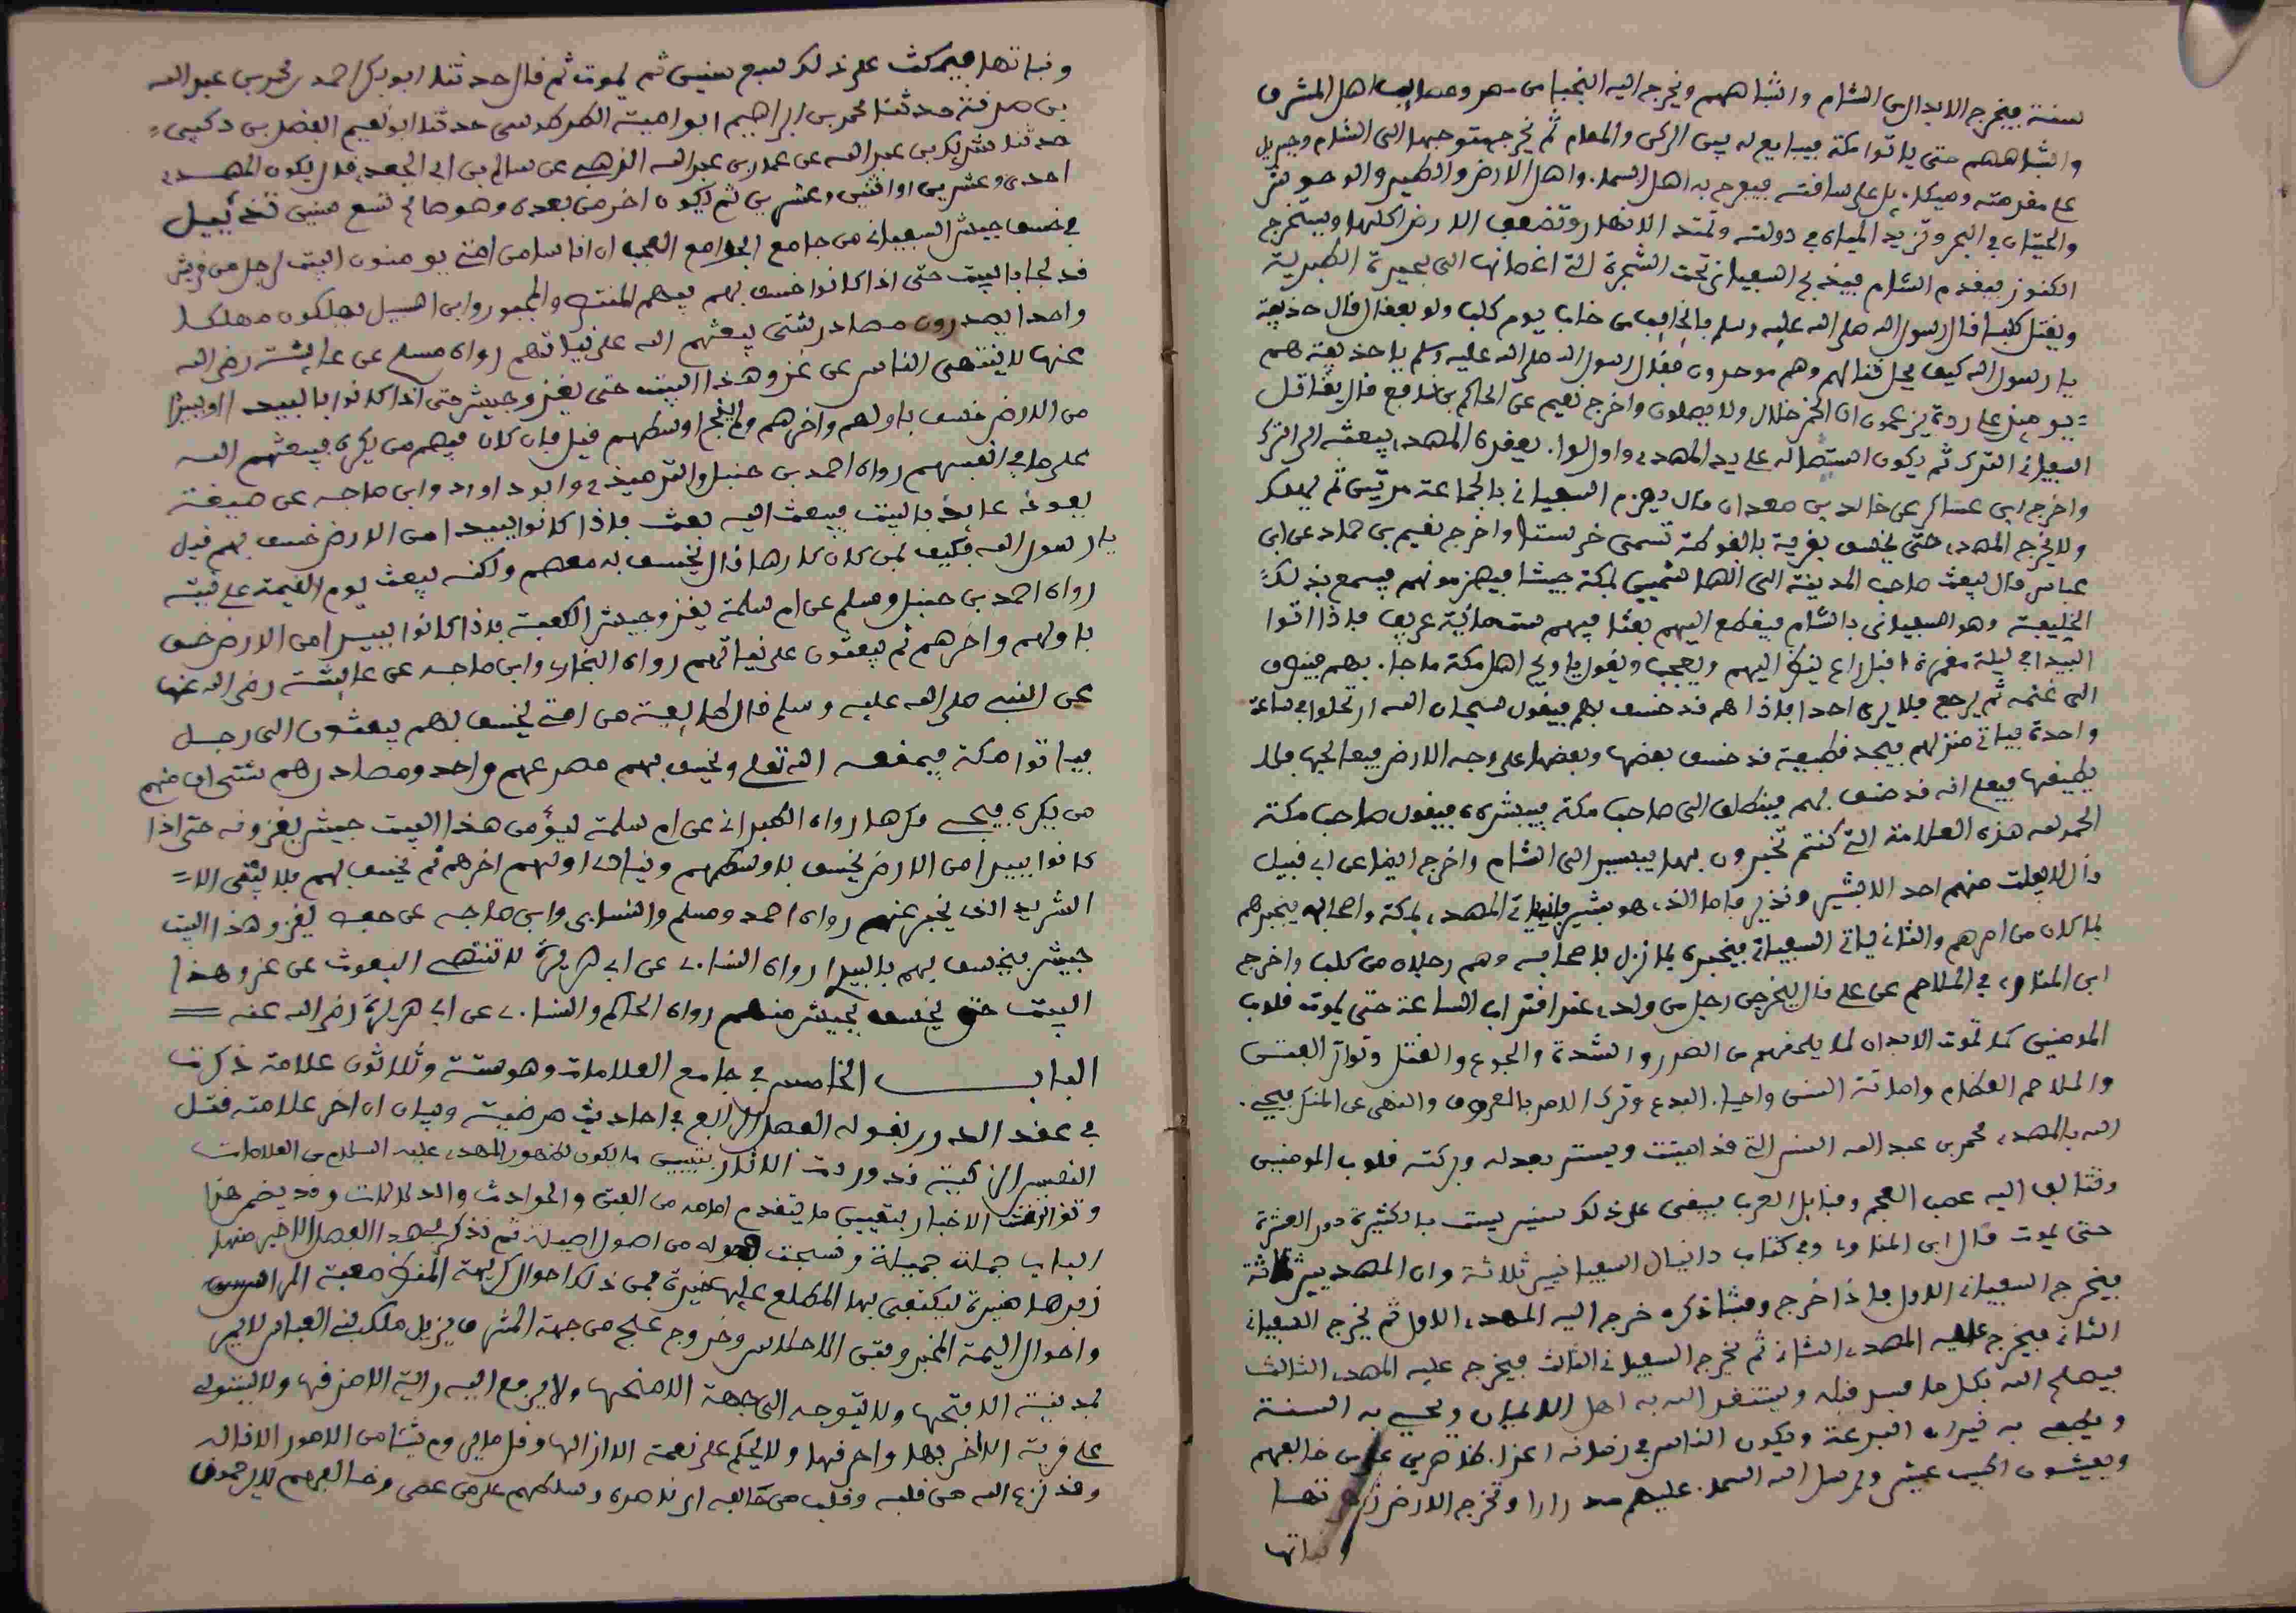 سنة فيخرج الابدال من الشام واشباههم ويخرج اليه النجبا من مصر وعصايب اهل المشرق
واشباههم حتى ياتوا مكة فيبايع له بين الركن والمقام ثم يخرج متوجها الى الشام وجبريل
على مقدمته وميكاءيل على ساقته فيفرح به اهل السماء واهل الارض والطير والوحوش
والحيتان في البحر وتزيد المياه في دولته وتمتد الانهار وتضعف الارض اكلها ويستخرج
الكنوز فيقدم الشام فيذبح السفياني تحت الشجرة التي اغصانها الى بحيرة الطبرية
ويقتل كلبا قال رسول الله صلى الله عليه وسلم فالخايب من خاب يوم كلب ولو بعقال قال حذيفة
يا رسول الله كيف يحل قتالهم وهم موحدون فقال رسول الله صلى الله عليه وسلم يا حذيفة هم
يوميذ على ردة يزعمون ان الخمر حلال ولا يصلون واخرج نعيم عن الحاكم بن نافع قال يقاتل
السفياني الترك ثم يكون استيصاله على يد المهدي واول لواء يعقده المهدي يبعثه الى الترك
واخرج ابن عساكر عن خالد بن معدان قال يهزم السفياني بالجماعة مرتين ثم يهلك
ولا يخرج المهدي حتى يخسف بقرية بالغوطة تسمى خرستا واخرج نعيم بن حماد عن ابن
عباس قال يبعث صاحب المدينة الى الهاشميين بمكة جيشا فيهزمونهم فيسمع بذلك
الخليفة وهو السفياني بالشام فيقطع اليهم بعثا فيهم ستماية عريف فاذا اتوا
البيدا في ليلة مقمرة اقبل راع ينظر اليهم ويعجب ويقول يا ويح اهل مكة ما جاءهم فينصرف
الى غنمه ثم يرجع فلا يرى احدا فاذا هم قد خسف بهم فيقول سبحان الله ارتحلوا في ساعة
واحدة فياتي منزلهم فيجد قطيفة قد خسف بعضها وبعضها على وجه الارض فيعالجها فلا
يطيقها فيعلم انه قد خسف بهم فينطلق الى صاحب مكة فيبشره فيقول صاحب مكة
الحمد لله هذه العلامة التي كنتم تخبرون بها فيسير الى الشام واخرج ايضا عن ابي قبيل
قال لا يفلت منهم احد الا بشير ونذير فاما الذي هو بشير فانه ياتي المهدي بمكة واصحابه فيخبرهم
بما كان من امرهم والثاني ياتي السفياني فيخبره بما نزل باصحابه وهم رجلان من كلب واخرج
ابن المناوي في الملاحم عن علي قال ليخرجن رجل من ولدي عند اقتراب الساعة حتى تموت قلوب
المومنين كما تموت الابدان لما يلحقهم من الضرر والشدة والجوع والقتل وتواتر الفتن
والملاحم العظام واماتة السنن واحياء البدع وترك الامر بالمعروف والنهي عن المنكر فيحيي
الله بالمهدي محمد بن عبد الله السنن التي قد اميتت ويسر بعدله وبركته قلوب المومنين
وتتالف اليه عصب العجم وقبايل العرب فيبقى على ذلك سنين ليست بالكثيرة دون العشرة
حتى يموت قال ابن المناوي وفي كتاب دانيال السفيانيين ثلاثة وان المهديين ثلاثة
فيخرج السفياني الاول فاذا خرج وفشا ذكره خرج اليه المهدي الاول ثم يخرج السفياني
الثاني فيخرج عليه المهدي الثاني ثم يخرج السفياني الثالث فيخرج عليه المهدي الثالث
فيصلح الله بكل ما فسد قبله ويستنقذ الله به اهل الايمان ويحيي به السنة
ويطفي به نيران البدعة ويكون الناس في زمانه اعزاء ظاهرين على من خالفهم
ويعيشون اطيب عيش ويرسل الله السماء عليهم مدرارا وتخرج الارض زهرتها
ونباتها
ونباتها فيمكث على ذلك سبع سنين ثم يموت ثم قال حدثنا ابو بكر احمد بن محمد بن عبد الله
بن صدقة حدثنا محمد بن ابراهيم ابو امية الطرطوسي حدثنا ابو نعيم الفضل بن دكين
حدثنا شريك بن عبد الله عن عمار بن عبد الله الذهبي عن سالم بن ابي الجعد قال يكون المهدي
احدى وعشرين او اثنين وعشرين ثم يكون اخر من بعده وهو صالح تسع سنين تذييل
في خسف جيش السفياني من جامع الجوامع العجب ان اناسا من امتي يومون البيت لرجل من قريش
قد لجا بالبيت حتى اذا كانوا خسف بهم فيهم المستبصر والمجبور وابن السبيل يهلكون مهلكا
واحدا يصدرون مصادر شتى يبعثهم الله على نياتهم رواه مسلم عن عايشة رضي الله
عنها لا ينتهي الناس عن غزو هذا البيت حتى يغزو جيش حتى اذا كانوا بالبيدا او بيدا
من الارض خسف باولهم واخرهم ولم ينج اوسطهم قيل فان كان فيهم من يكره يبعثهم الله
على ما في انفسهم رواه احمد بن حنبل والترمذي وابو داود وابن ماجه عن صفية
يعوذ عايذ بالبيت فيبعث اليه بعث فاذا كانوا ببيدا من الارض خسف بهم قيل
يا رسول الله فكيف بمن كان كارها قال يخسف به معهم ولكنه يبعث يوم القيمة على نيته
رواه احمد بن حنبل ومسلم عن ام سلمة يغزو جيش الكعبة فاذا كانوا ببيدا من الارض خسف
باولهم واخرهم ثم يبعثون على نياتهم رواه البخاري وابن ماجه عن عايشة رضي الله عنها
عن النبي صلى الله عليه وسلم قال طايفة من امتي يخسف بهم يبعثون الى رجل
فياتوا مكة فيمنعه الله تعلى ويخسف بهم مصرعهم واحد ومصادرهم شتى ان منهم
من يكره فيجي مكرها رواه الطبراني عن ام سلمة ليؤمن هذا البيت جيش يغزونه حتى اذا
كانوا ببيدا من الارض يخسف باوسطهم وينادي اولهم اخرهم ثم يخسف بهم فلا يبقى الا
الشريد الذي يخبر عنهم رواه احمد ومسلم والنساءي وابن ماجه عن حفصة يغزو هذا البيت
جيش فيخسف بهم بالبيدا رواه النساءي عن ابي هريرة لا تنتهي البعوث عن غزو هذا
البيت حتى يخسف بجيش منهم رواه الحاكم والنساءي عن ابي هريرة رضي الله عنه
الباب الخامس في جامع العلامات وهو ستة وثلاثون علامة ذكرت
في عقد الدرر بقوله الفصل الرابع في احاديث مرضية وبيان ان اخر علامته قتل
النفس الزكية قد وردت الاثار بتبيين ما يكون لظهور المهدي عليه السلام من العلامات
وتواترت الاخبار بتعيين ما يتقدم امامه من الفتن والحوادث والدلالات وقد يضم هذا
الباب جملة جميلة من اصول اصيلة ثم نذكر في هذا الفصل الاخير منها
نبذها يسيرة ليكتفي بها المطلع عليها
واحوال اليمة المخبر وفتن الاحلاس وخروج علج من جهة المشرق يزيل ملك بني العباس لا يمر
بمدينة الا فتحها ولا يتوجه الى جهة الا منحها ولا ترفع اليه راية الا مزقها ولا يستولي
على قرية الا اخربها واحرقها ولا يحكم على نعمة الا ازالها وقل ما يروم شيئا من الامور الا ناله
وقد نزع الله من قلبه وقلب من حالفه الرحمة وسلطهم على من عصى وخالفهم لا يرحمون